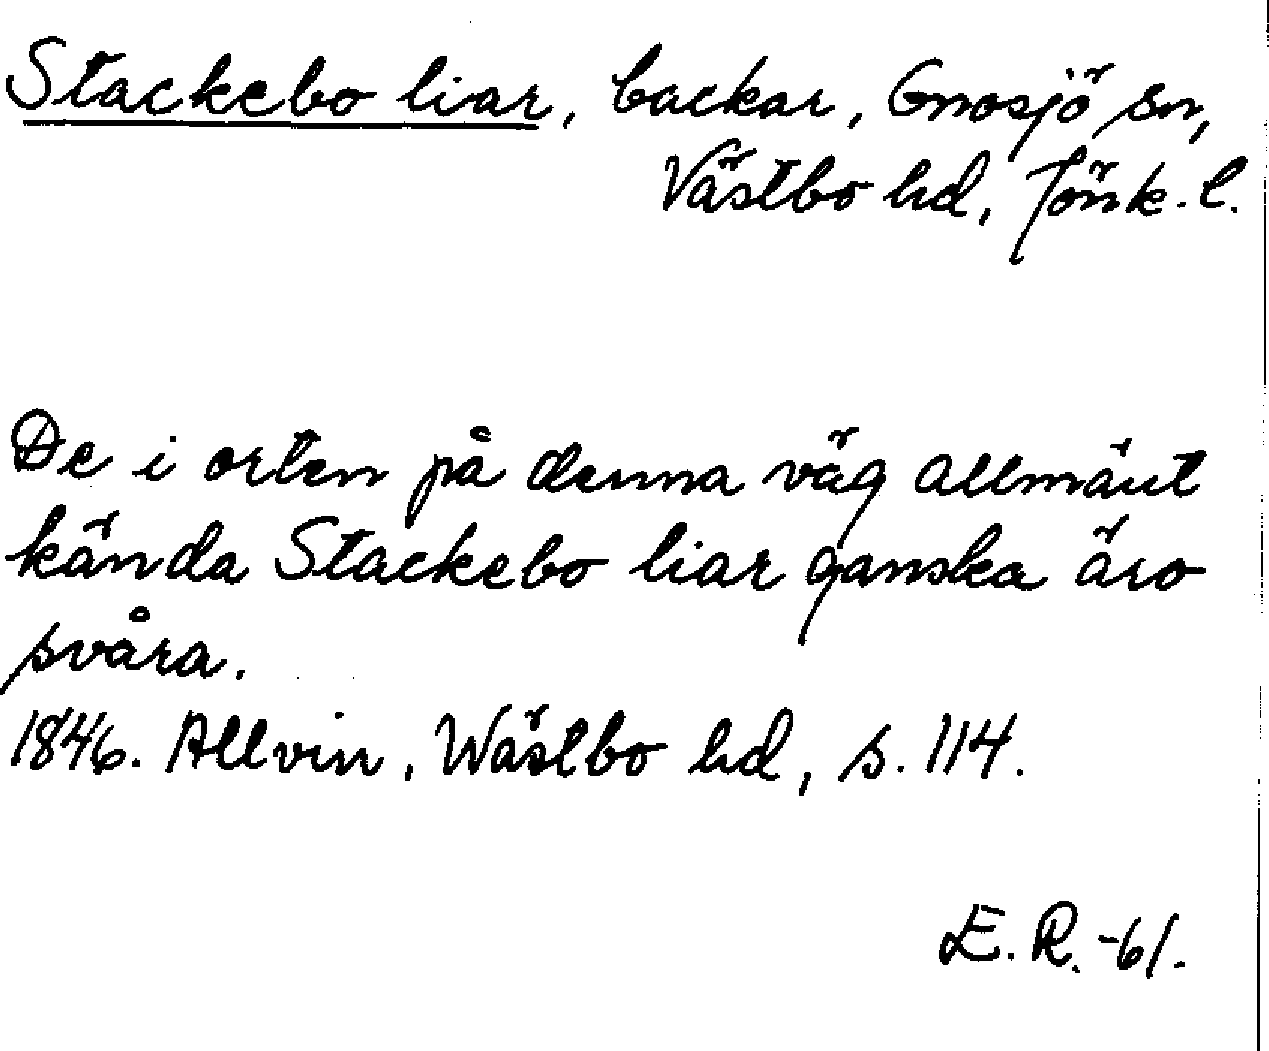 Stackebo liar, backar, Gnosjö sn,
Västbo hd, Jönk. l.
De i orten på denna väg allmänt
kända Stackebo liar ganska äro
svåra.
1846. Allvin, Wästbo hd, s. 114.
E.R.-61.